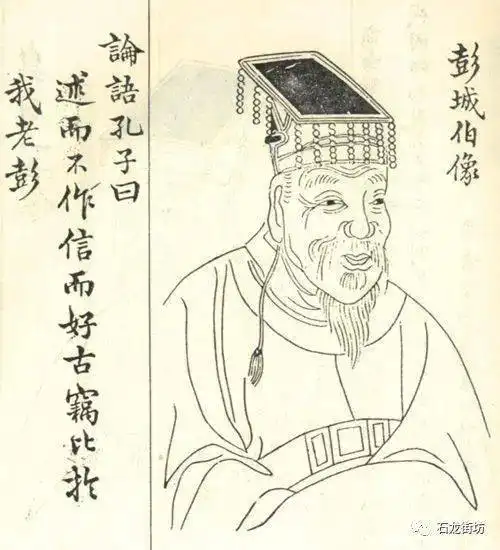 彭城伯像
論語孔子曰
述而不作信而好古竊比於
我老彭
石龙街坊